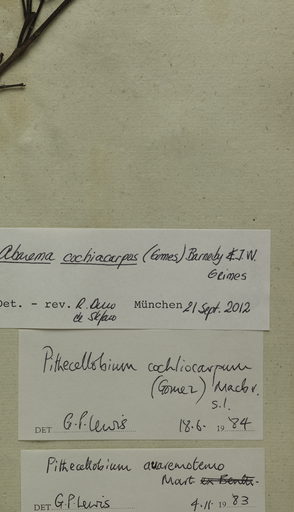 Abarema cochiacarpos (Gomes) Barneby & J.W.
Grimes
Det. - rev. R. Duno München 21 Sept. 2012
de Stefano
Pithecellobium cochliocarpum
(Gomez) Macbr.
s.l.
DET G.P. Lewis 18.6. 1984
Pithecellobium avaremotemo
Mart ex Benth.
DET G.P. Lewis 4.11. 1983